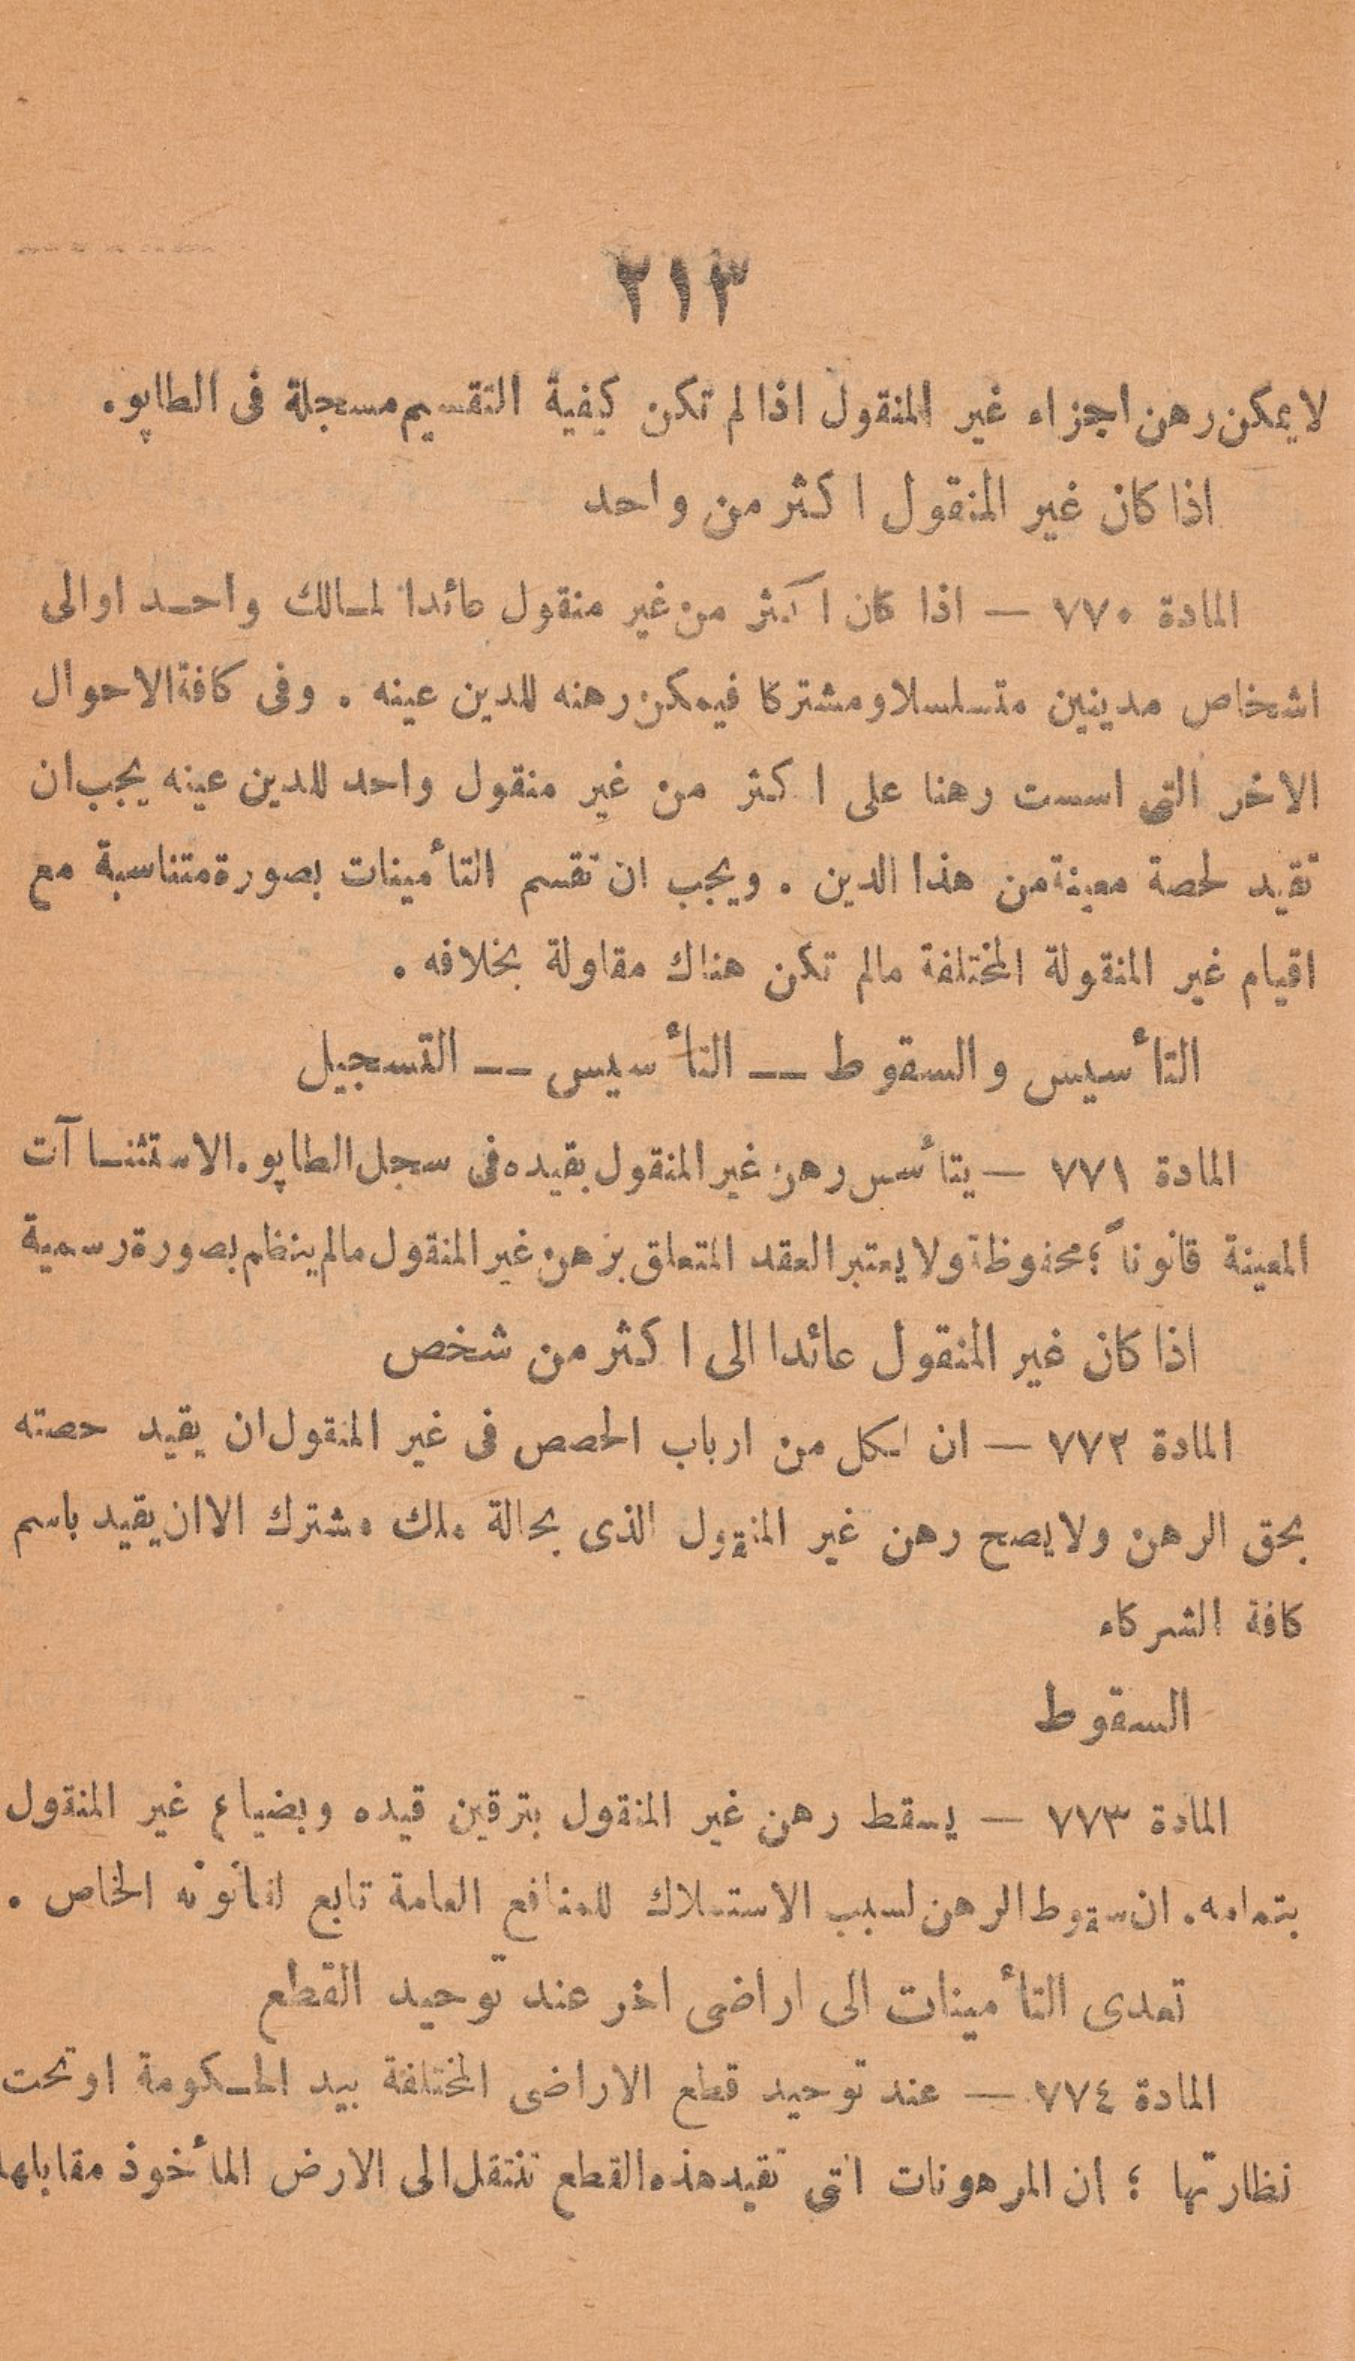 ٢١٣
لا يمكن رهن اجزاء غير المنقول اذا لم تكن كيفية التقسيم مسجلة فى الطاپو.
اذا كان غير المنقول اكثر من واحد
المادة ٧٧٠ — اذا كان اكثر من غير منقول عائدا لمالك واحد او الى
اشخاص مدينين متسلسلا ومشتركا فيمكن رهنه للدين عينه . وفى كافة الاحوال
الاخر التى اسست رهنا على اكثر من غير منقول واحد للدين عينه يجب ان
تقيد لحصة معينة من هذا الدين . ويجب ان تقسم التأمينات بصورة متناسبة مع
اقيام غير المنقولة المختلفة مالم تكن هناك مقاولة بخلافه .
التأسيس والسقوط — التأسيس — التسجيل
المادة ٧٧١ — يتأسس رهن غير المنقول بقيده فى سجل الطاپو. الاستثناآت
المعينة قانوناً ؛ محفوظة ولا يعتبر العقد المتعلق برهن غير المنقول مالم ينظم بصورة رسمية
اذا كان غير المنقول عائدا الى اكثر من شخص
المادة ٧٧٢ — ان لكل من ارباب الحصص فى غير المنقول ان يقيد حصته
بحق الرهن ولا يصح رهن غير المنقول الذى بحالة ملك مشترك الا ان يقيد باسم
كافة الشركاء
السقوط
المادة ٧٧٣ — يسقط رهن غير المنقول بترقين قيده وبضياع غير المنقول
بتمامه. ان سقوط الرهن لسبب الاستملاك للمنافع العامة تابع لقانونه الخاص .
تعدى التأمينات الى اراضى اخر عند توحيد القطع
المادة ٧٧٤ — عند توحيد قطع الاراضى المختلفة بيد الحكومة او تحت
نظارتها ؛ ان المرهونات التى تقيد هذه القطع تنتقل الى الارض المأخوذ مقابلها